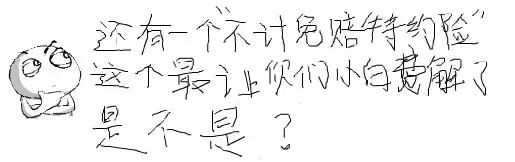 还有一个"不计免赔特约险"
这个最让你们小白费解了
是不是？